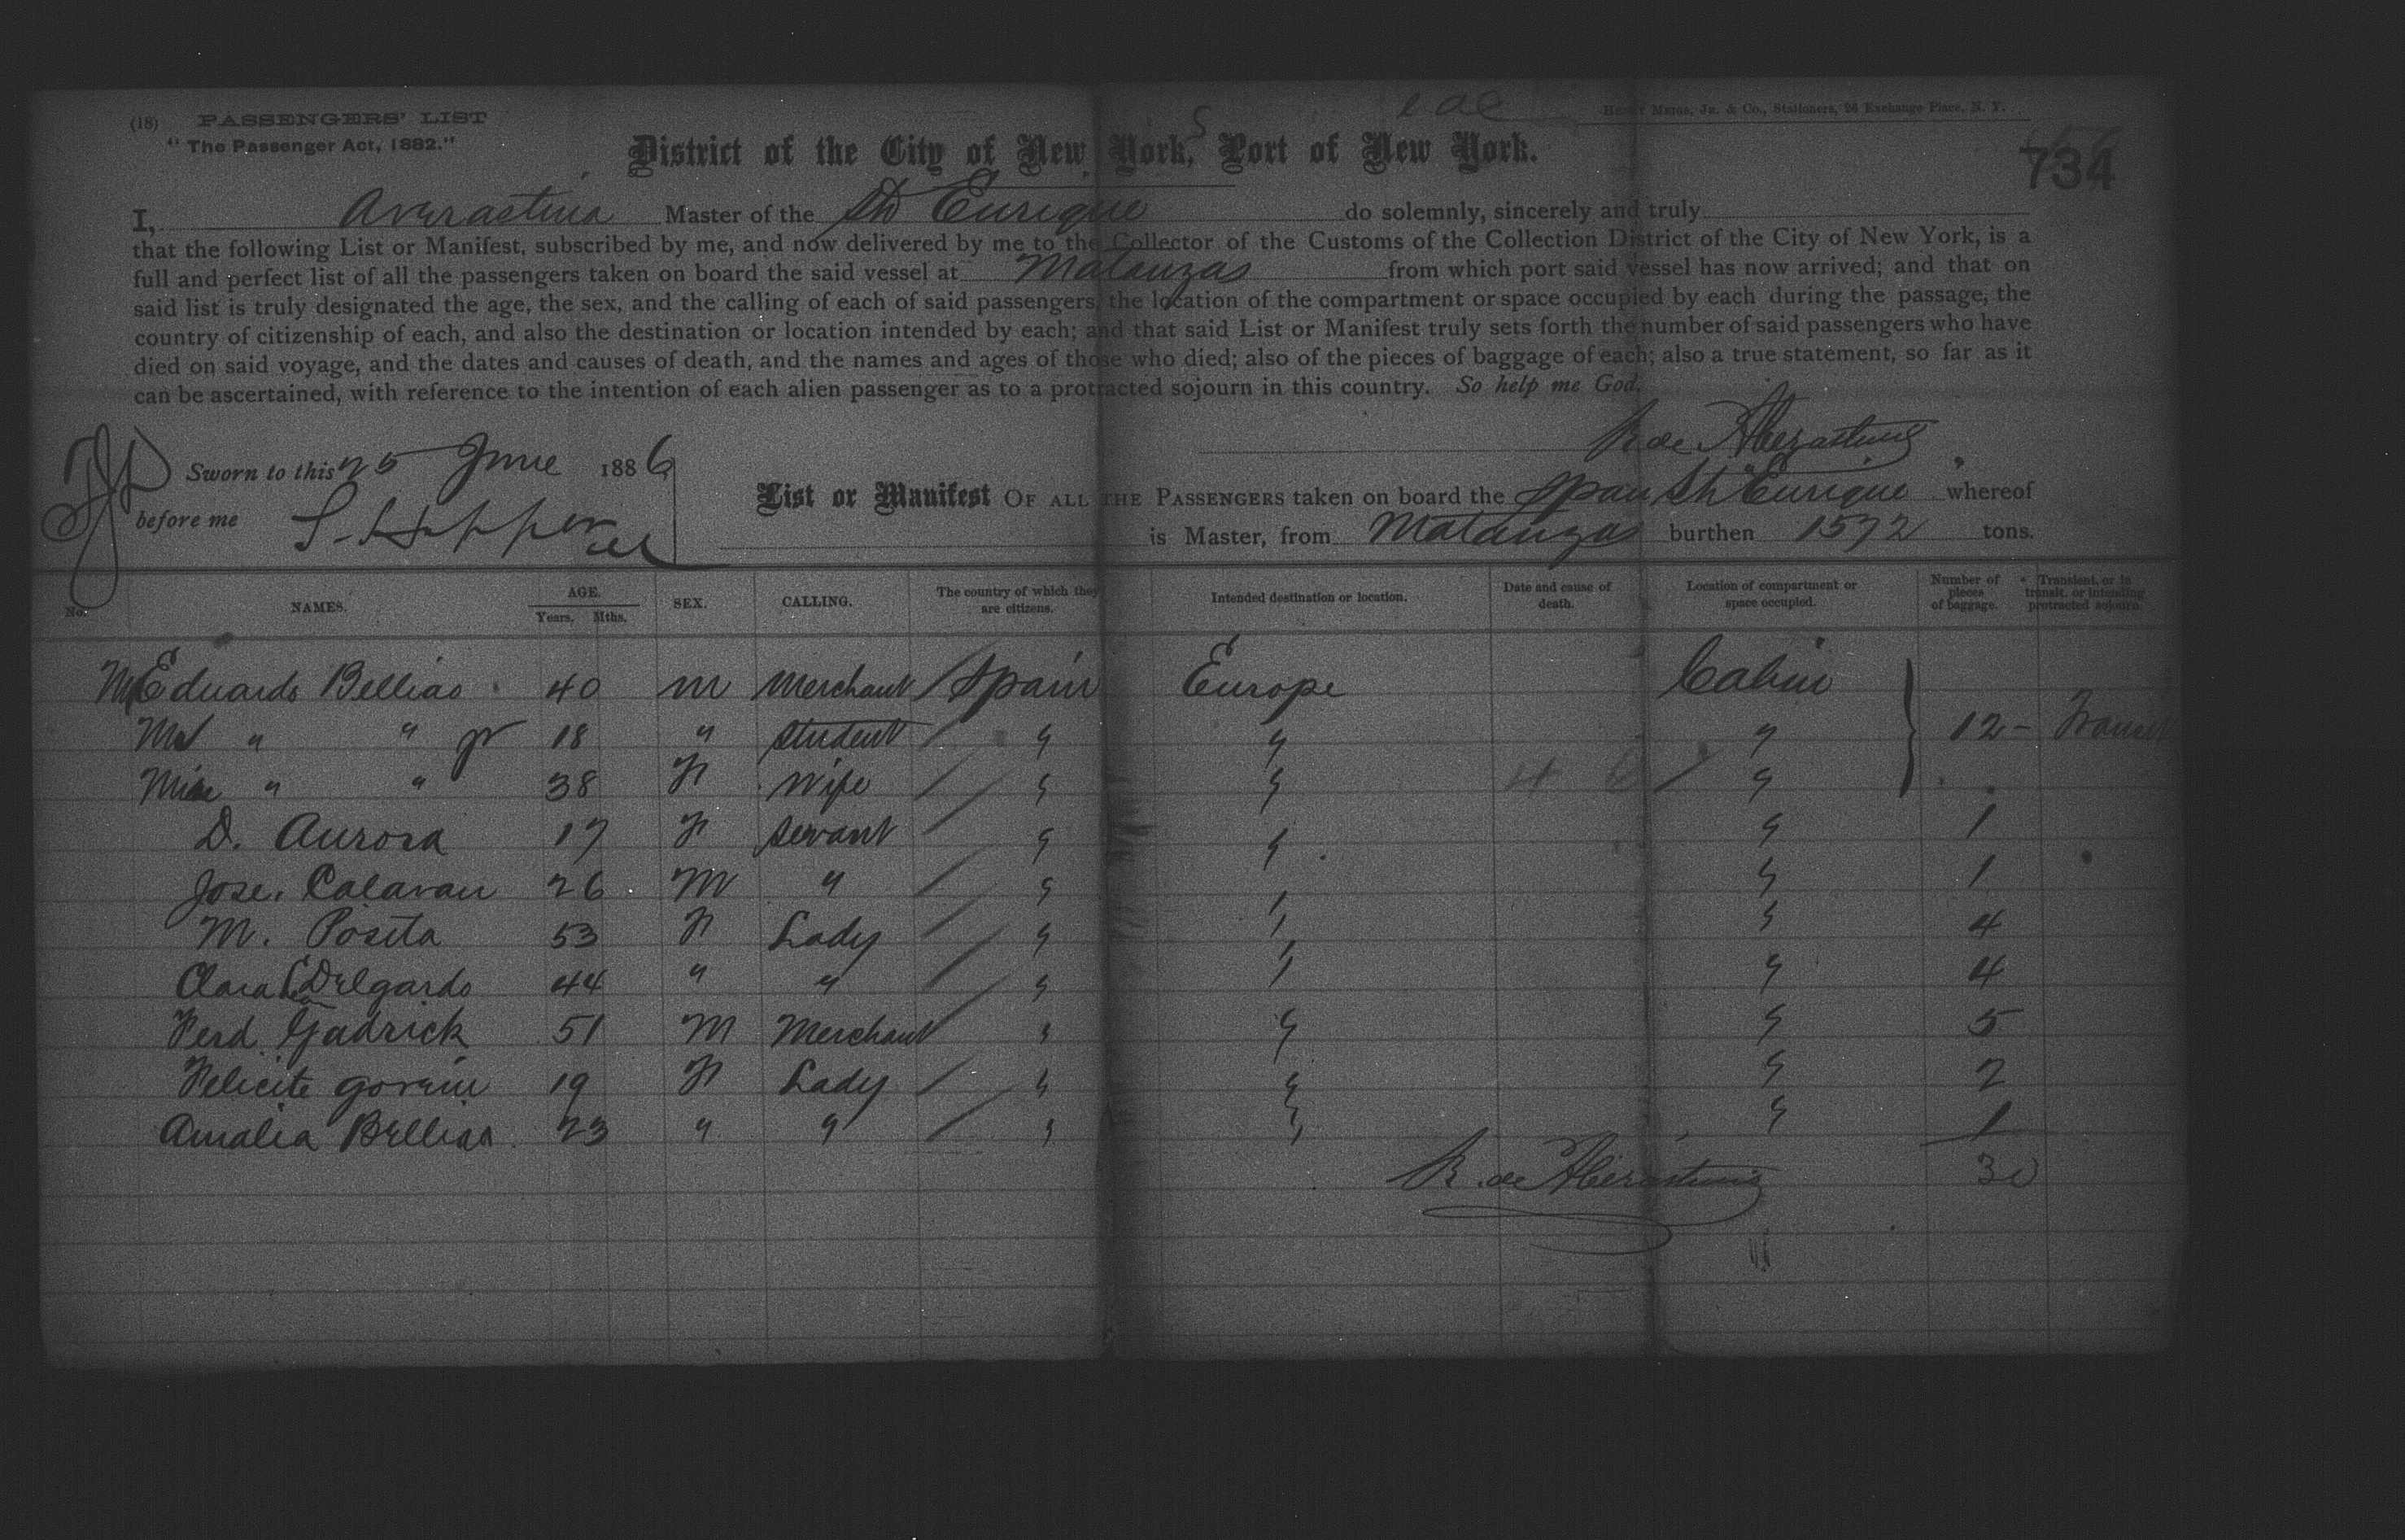 (18) PASSENGERS' LIST
"The Passenger Act, 1882."
HENRY MEIGS, JR. & CO., Stationers, 26 Exchange Place, N. Y.
District of the City of New York, Port of New York.
734
I, Averastina Master of the Sh Enrique do solemnly, sincerely and truly
that the following List or Manifest, subscribed by me, and now delivered by me to the Collector of the Customs of the Collection District of the City of New York, is a
full and perfect list of all the passengers taken on board the said vessel at Matanzas from which port said vessel has now arrived; and that on
said list is truly designated the age, the sex, and the calling of each of said passengers, the location of the compartment or space occupied by each during the passage, the
country of citizenship of each, and also the destination or location intended by each; and that said List or Manifest truly sets forth the number of said passengers who have
died on said voyage, and the dates and causes of death, and the names and ages of those who died; also of the pieces of baggage of each; also a true statement, so far as it
can be ascertained, with reference to the intention of each alien passenger as to a protracted sojourn in this country. So help me God.
R de Aberasturis
Sworn to this 25 June 1886
before me
List or Manifest OF ALL THE PASSENGERS taken on board the Span Sh "Enrique" whereof
is Master, from Matanzas burthen 1572 tons.
No. NAMES. AGE. Years. Mths. SEX. CALLING. The country of which they are citizens. Intended destination or location. Date and cause of death. Location of compartment or space occupied. Number of pieces of baggage. Transient, or in transit, or intending protracted sojourn.
Mr Eduardo Bellido 40 M Merchant Spain Europe Cabin
Mr " " jr 18 " Student " " " 12 - Transit
" " 38 F Wife " " "
D. Aurora 17 F Servant " " " 1
Jose Calavan 26 M " " " " 1
M. Posita 53 F Lady " " " 4
Clara Delgardo 44 " " " " " 4
Ferd Gadrick 51 M Merchant " " " 5
Felicite Govein 19 F Lady " " " 2
Amalia Bellias 23 " " " " " 1
R. de Aberasturis 30